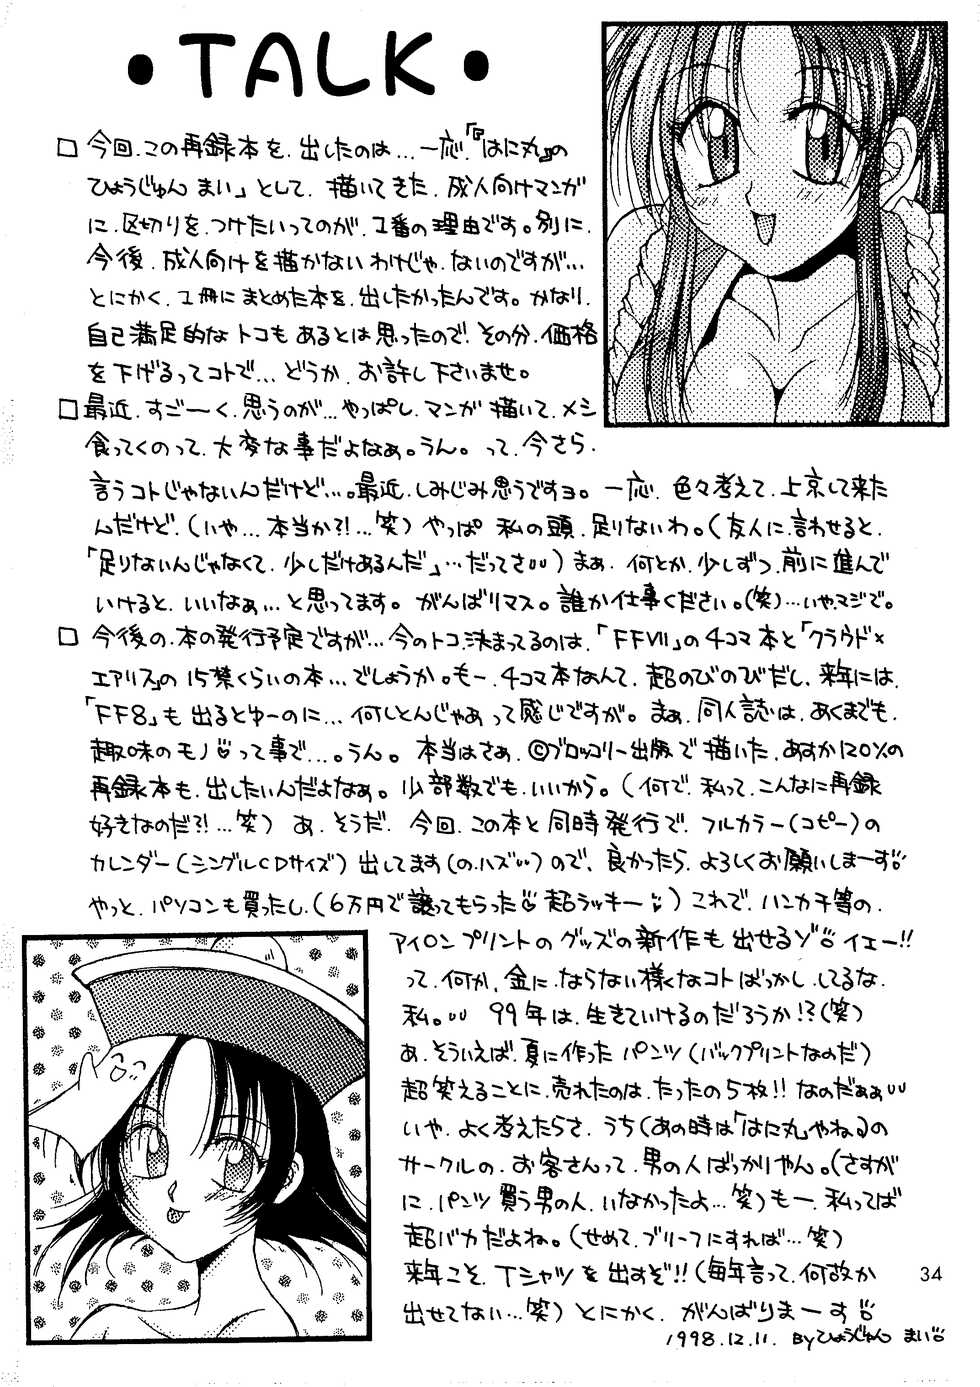 •TALK•
□ 今回、この再録本を、出したのは…一応、「『はに丸』の
ひょうじゅん まい」として、描いてきた、成人向けマンガ
に、区切りを、つけたいってのが、1番の理由です。別に、
今後、成人向けを描かないわけじゃ、ないのですが…
とにかく、1冊にまとめた本を、出したかったんです。かなり、
自己満足的なトコもあるとは思ったので、その分、価格
を下げるってコトで…どうか、お許し下さいませ。
□ 最近、すご〜く、思うのが…やっぱし、マンガ描いて、メシ
食ってくのって、大変な事だよなぁ。うん。って、今さら、
言うコトじゃないんだけど…。最近、しみじみ思うですヨ。一応、色々考えて、上京して来た
んだけど、(いや…本当か?!…笑) やっぱ 私の頭、足りないわ。(友人に言わせると、
「足りないんじゃなくて、少しだけあるんだ」…だってさ) まぁ、何とか、少しずつ、前に進んで
いけると、いいなぁ…と思ってます。がんばリマス。誰か仕事ください。(笑)…いや、マジで。
□ 今後の、本の発行予定ですが…今のトコ、決まってるのは、「FFVII」の4コマ本と「クラウド×
エアリス」の15禁くらいの本…でしょうか。もー、4コマ本なんて、超のびのびだし、来年には、
「FF8」も出るとゆーのに…何しとんじゃあって感じですが。まぁ、同人誌は、あくまでも、
趣味のモノって事で…。うん。本当はさぁ、©ブロッコリー出版で描いた、あすか120%の
再録本も、出したいんだよなぁ。少部数でも、いいから。(何で、私って、こんなに再録
好きなのだ?!…笑) あ、そうだ、今回、この本と同時発行で、フルカラー(コピー)の
カレンダー(シングルCDサイズ)出してます(の、ハズ)ので、良かったら、よろしくお願いしまーす
やっと、パソコンも買ったし、(6万円で譲ってもらった 超ラッキー) これで、ハンカチ等の、
アイロンプリントのグッズの新作も出せるゾ イエー!!
って、何か、金に、ならない様なコトばっかし、してるな、
私。 99年は、生きていけるのだろうか!?(笑)
あ、そういえば、夏に作った パンツ(バックプリントなのだ)
超笑えることに、売れたのは、たったの5枚!! なのだぁぁ
いや、よく考えたらさ、うち(あの時は「はに丸」やねる)の
サークルの、お客さんって、男の人ばっかりやん。(さすが
に、パンツ買う男の人、いなかったよ…笑) もー、私ってば
超バカだよね。(せめて、ブリーフにすれば…笑)
来年こそ、Tシャツを出すぞ!! (毎年言って、何故か
出せてない…笑) とにかく、がんばりまーす
1998.12.11. Byひょうじゅん まい
34